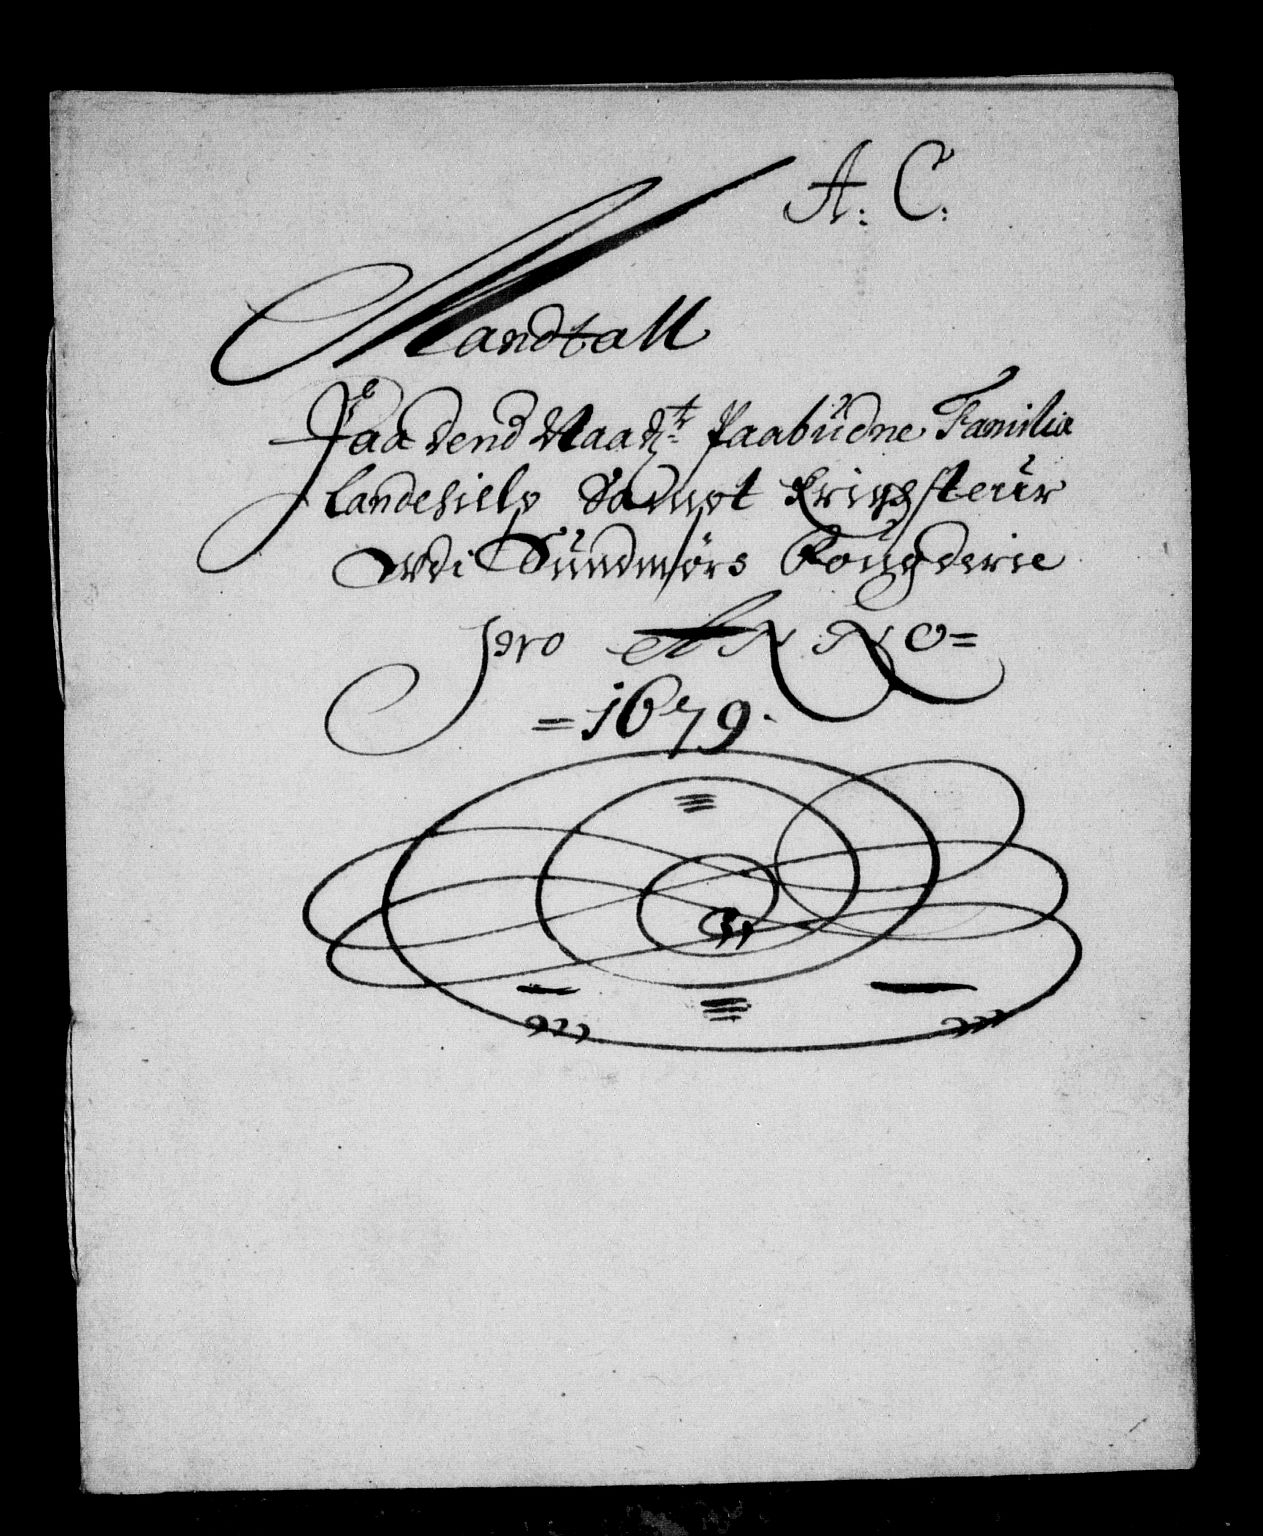 A: C:
Mandtall
Paa dend Naad:te Paabüdne Familie
Landehielp Sampt Krigssteür
Vdi Sündmørs Fougderie
pro ANNO=
=1679.